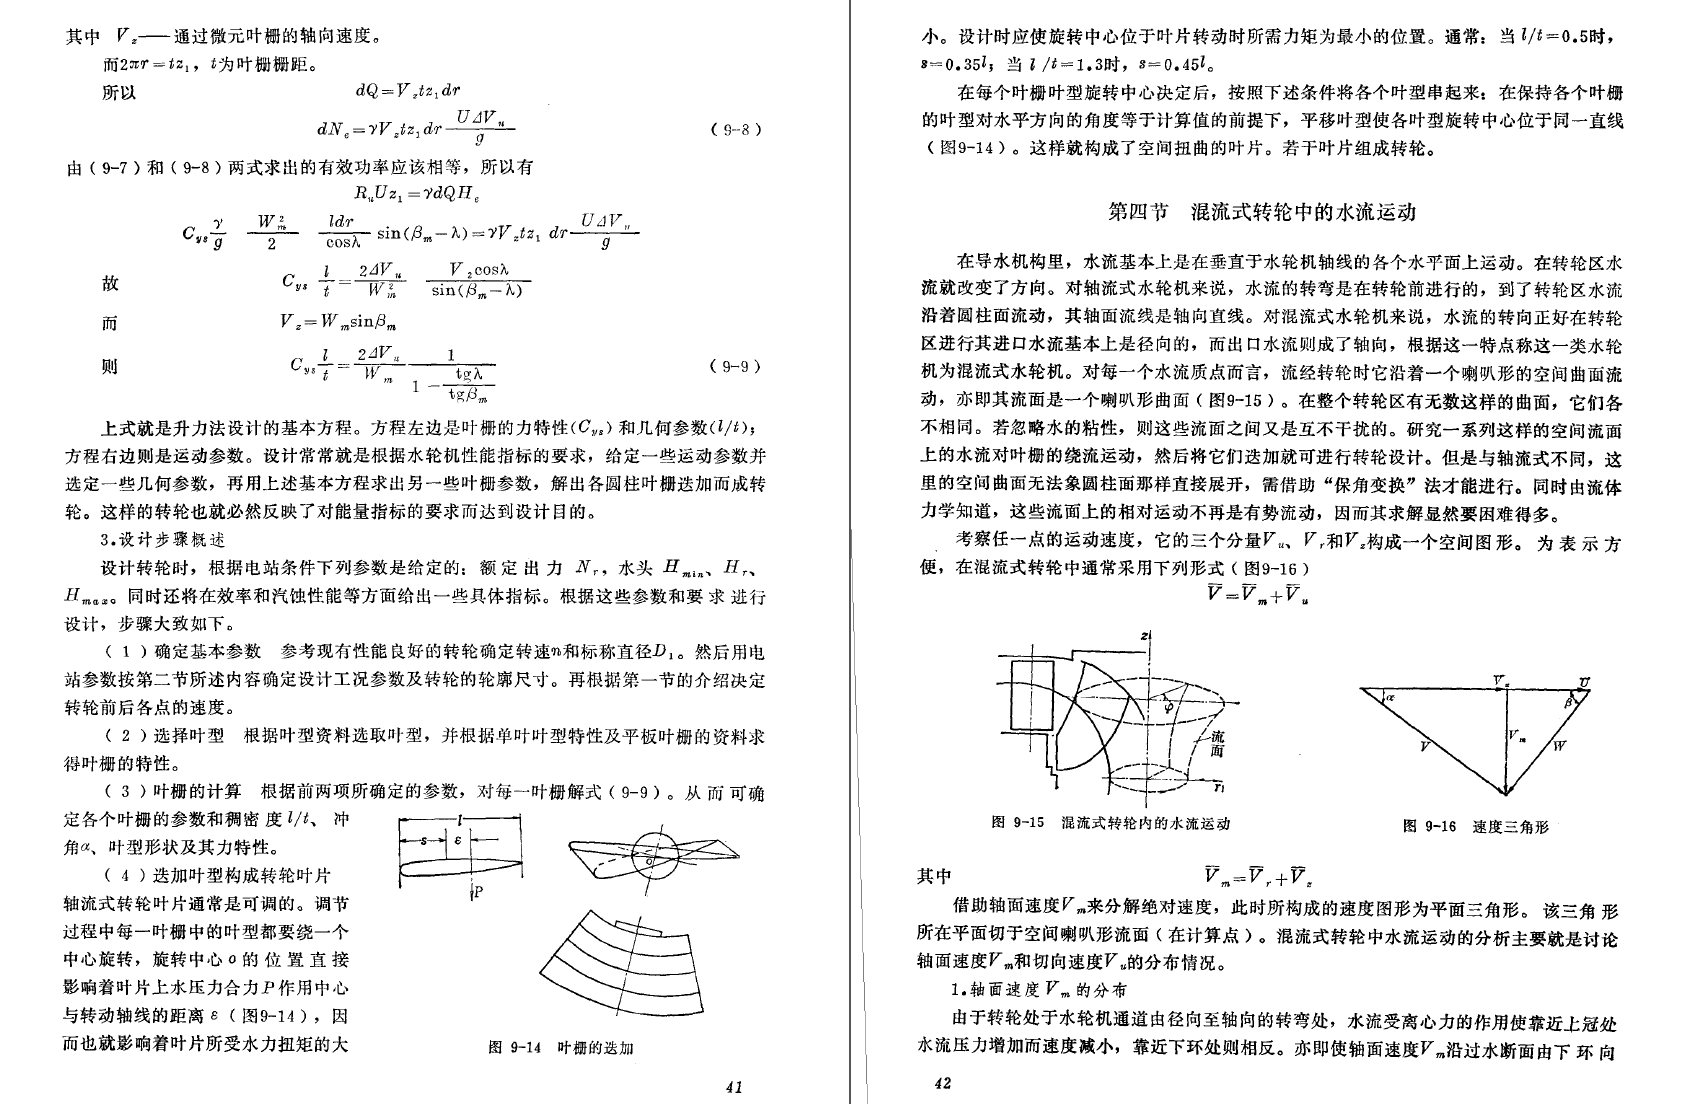 其中 V_z——通过微元叶栅的轴向速度。
而2πr=tz₁，t为叶栅栅距。
所以 dQ=V_z tz₁dr
dN_e=γV_z tz₁dr UΔV_u/g （9-8）
由（9-7）和（9-8）两式求出的有效功率应该相等，所以有
R_uUz₁=γdQH_e
C_ys γ/g W_m²/2 ldr/cosλ sin(β_m-λ)=γV_z tz₁ dr UΔV_u/g
故 C_ys l/t=2ΔV_u/W_m² V_z cosλ/sin(β_m-λ)
而 V_z=W_m sinβ_m
则 C_ys l/t=2ΔV_u/W_m 1/(1-tgλ/tgβ_m) （9-9）
上式就是升力法设计的基本方程。方程左边是叶栅的力特性(C_ys)和几何参数(l/t)；
方程右边则是运动参数。设计常常就是根据水轮机性能指标的要求，给定一些运动参数并
选定一些几何参数，再用上述基本方程求出另一些叶栅参数，解出各圆柱叶栅迭加而成转
轮。这样的转轮也就必然反映了对能量指标的要求而达到设计目的。
3.设计步骤概述
设计转轮时，根据电站条件下列参数是给定的：额定出力 N_r，水头 H_min、H_r、
H_max。同时还将在效率和汽蚀性能等方面给出一些具体指标。根据这些参数和要求进行
设计，步骤大致如下。
（1）确定基本参数 参考现有性能良好的转轮确定转速n和标称直径D₁。然后用电
站参数按第二节所述内容确定设计工况参数及转轮的轮廓尺寸。再根据第一节的介绍决定
转轮前后各点的速度。
（2）选择叶型 根据叶型资料选取叶型，并根据单叶叶型特性及平板叶栅的资料求
得叶栅的特性。
（3）叶栅的计算 根据前两项所确定的参数，对每一叶栅解式（9-9）。从而可确
定各个叶栅的参数和稠密度l/t、冲
角α、叶型形状及其力特性。
（4）迭加叶型构成转轮叶片
轴流式转轮叶片通常是可调的。调节
过程中每一叶栅中的叶型都要绕一个
中心旋转，旋转中心o的位置直接
影响着叶片上水压力合力P作用中心
与转动轴线的距离ε（图9-14），因
而也就影响着叶片所受水力扭矩的大
l
s ε
P
o
图 9-14 叶栅的迭加
41
小。设计时应使旋转中心位于叶片转动时所需力矩为最小的位置。通常：当l/t=0.5时，
s=0.35l；当l/t=1.3时，s=0.45l。
在每个叶栅叶型旋转中心决定后，按照下述条件将各个叶型串起来：在保持各个叶栅
的叶型对水平方向的角度等于计算值的前提下，平移叶型使各叶型旋转中心位于同一直线
（图9-14）。这样就构成了空间扭曲的叶片。若干叶片组成转轮。
第四节 混流式转轮中的水流运动
在导水机构里，水流基本上是在垂直于水轮机轴线的各个水平面上运动。在转轮区水
流就改变了方向。对轴流式水轮机来说，水流的转弯是在转轮前进行的，到了转轮区水流
沿着圆柱面流动，其轴面流线是轴向直线。对混流式水轮机来说，水流的转向正好在转轮
区进行其进口水流基本上是径向的，而出口水流则成了轴向，根据这一特点称这一类水轮
机为混流式水轮机。对每一个水流质点而言，流经转轮时它沿着一个喇叭形的空间曲面流
动，亦即其流面是一个喇叭形曲面（图9-15）。在整个转轮区有无数这样的曲面，它们各
不相同。若忽略水的粘性，则这些流面之间又是互不干扰的。研究一系列这样的空间流面
上的水流对叶栅的绕流运动，然后将它们迭加就可进行转轮设计。但是与轴流式不同，这
里的空间曲面无法象圆柱面那样直接展开，需借助“保角变换”法才能进行。同时由流体
力学知道，这些流面上的相对运动不再是有势流动，因而其求解显然要困难得多。
考察任一点的运动速度，它的三个分量V_u、V_r和V_z构成一个空间图形。为表示方
便，在混流式转轮中通常采用下列形式（图9-16）
V̅=V̅_m+V̅_u
z
φ
流
面
r
图 9-15 混流式转轮内的水流运动
V_u U
α β
V V_m W
图 9-16 速度三角形
其中 V̅_m=V̅_r+V̅_z
借助轴面速度V_m来分解绝对速度，此时所构成的速度图形为平面三角形。该三角形
所在平面切于空间喇叭形流面（在计算点）。混流式转轮中水流运动的分析主要就是讨论
轴面速度V_m和切向速度V_u的分布情况。
1.轴面速度V_m的分布
由于转轮处于水轮机通道由径向至轴向的转弯处，水流受离心力的作用使靠近上冠处
水流压力增加而速度减小，靠近下环处则相反。亦即使轴面速度V_m沿过水断面由下环向
42